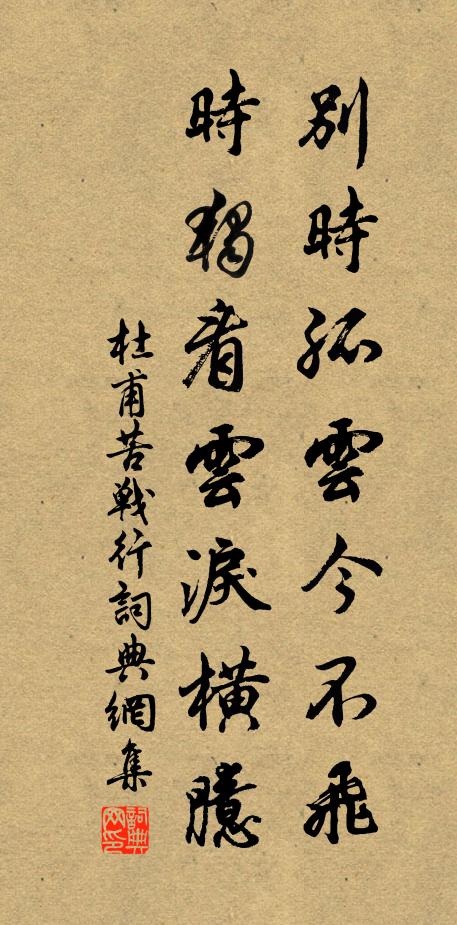 別時孤雲今不飛
時獨看雲淚橫臆
杜甫苦戰行詞典網集
詞典網印